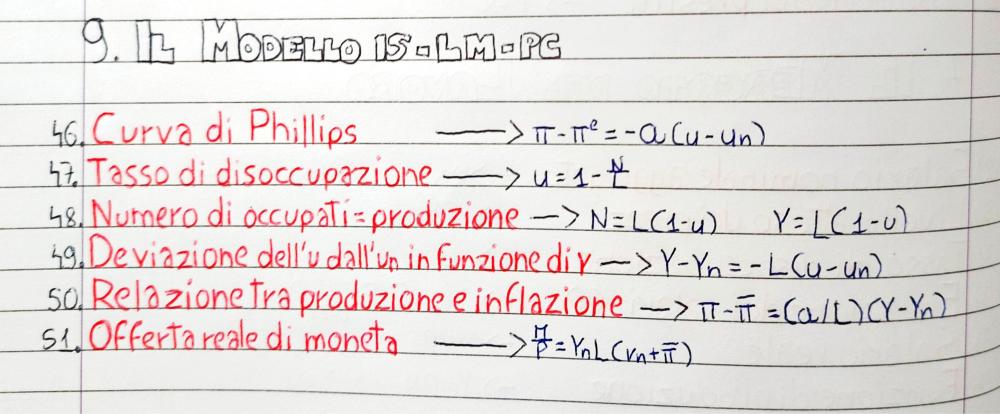 9. IL MODELLO IS-LM-PC
46. Curva di Phillips → π-πᵉ=-a(u-un)
47. Tasso di disoccupazione → u=1-N/L
48. Numero di occupati=produzione → N=L(1-u) Y=L(1-u)
49. Deviazione dell'u dall'un in funzione di Y → Y-Yn=-L(u-un)
50. Relazione tra produzione e inflazione → π-π̅=(a/L)(Y-Yn)
51. Offerta reale di moneta → M/P=YnL(rn+π̅)